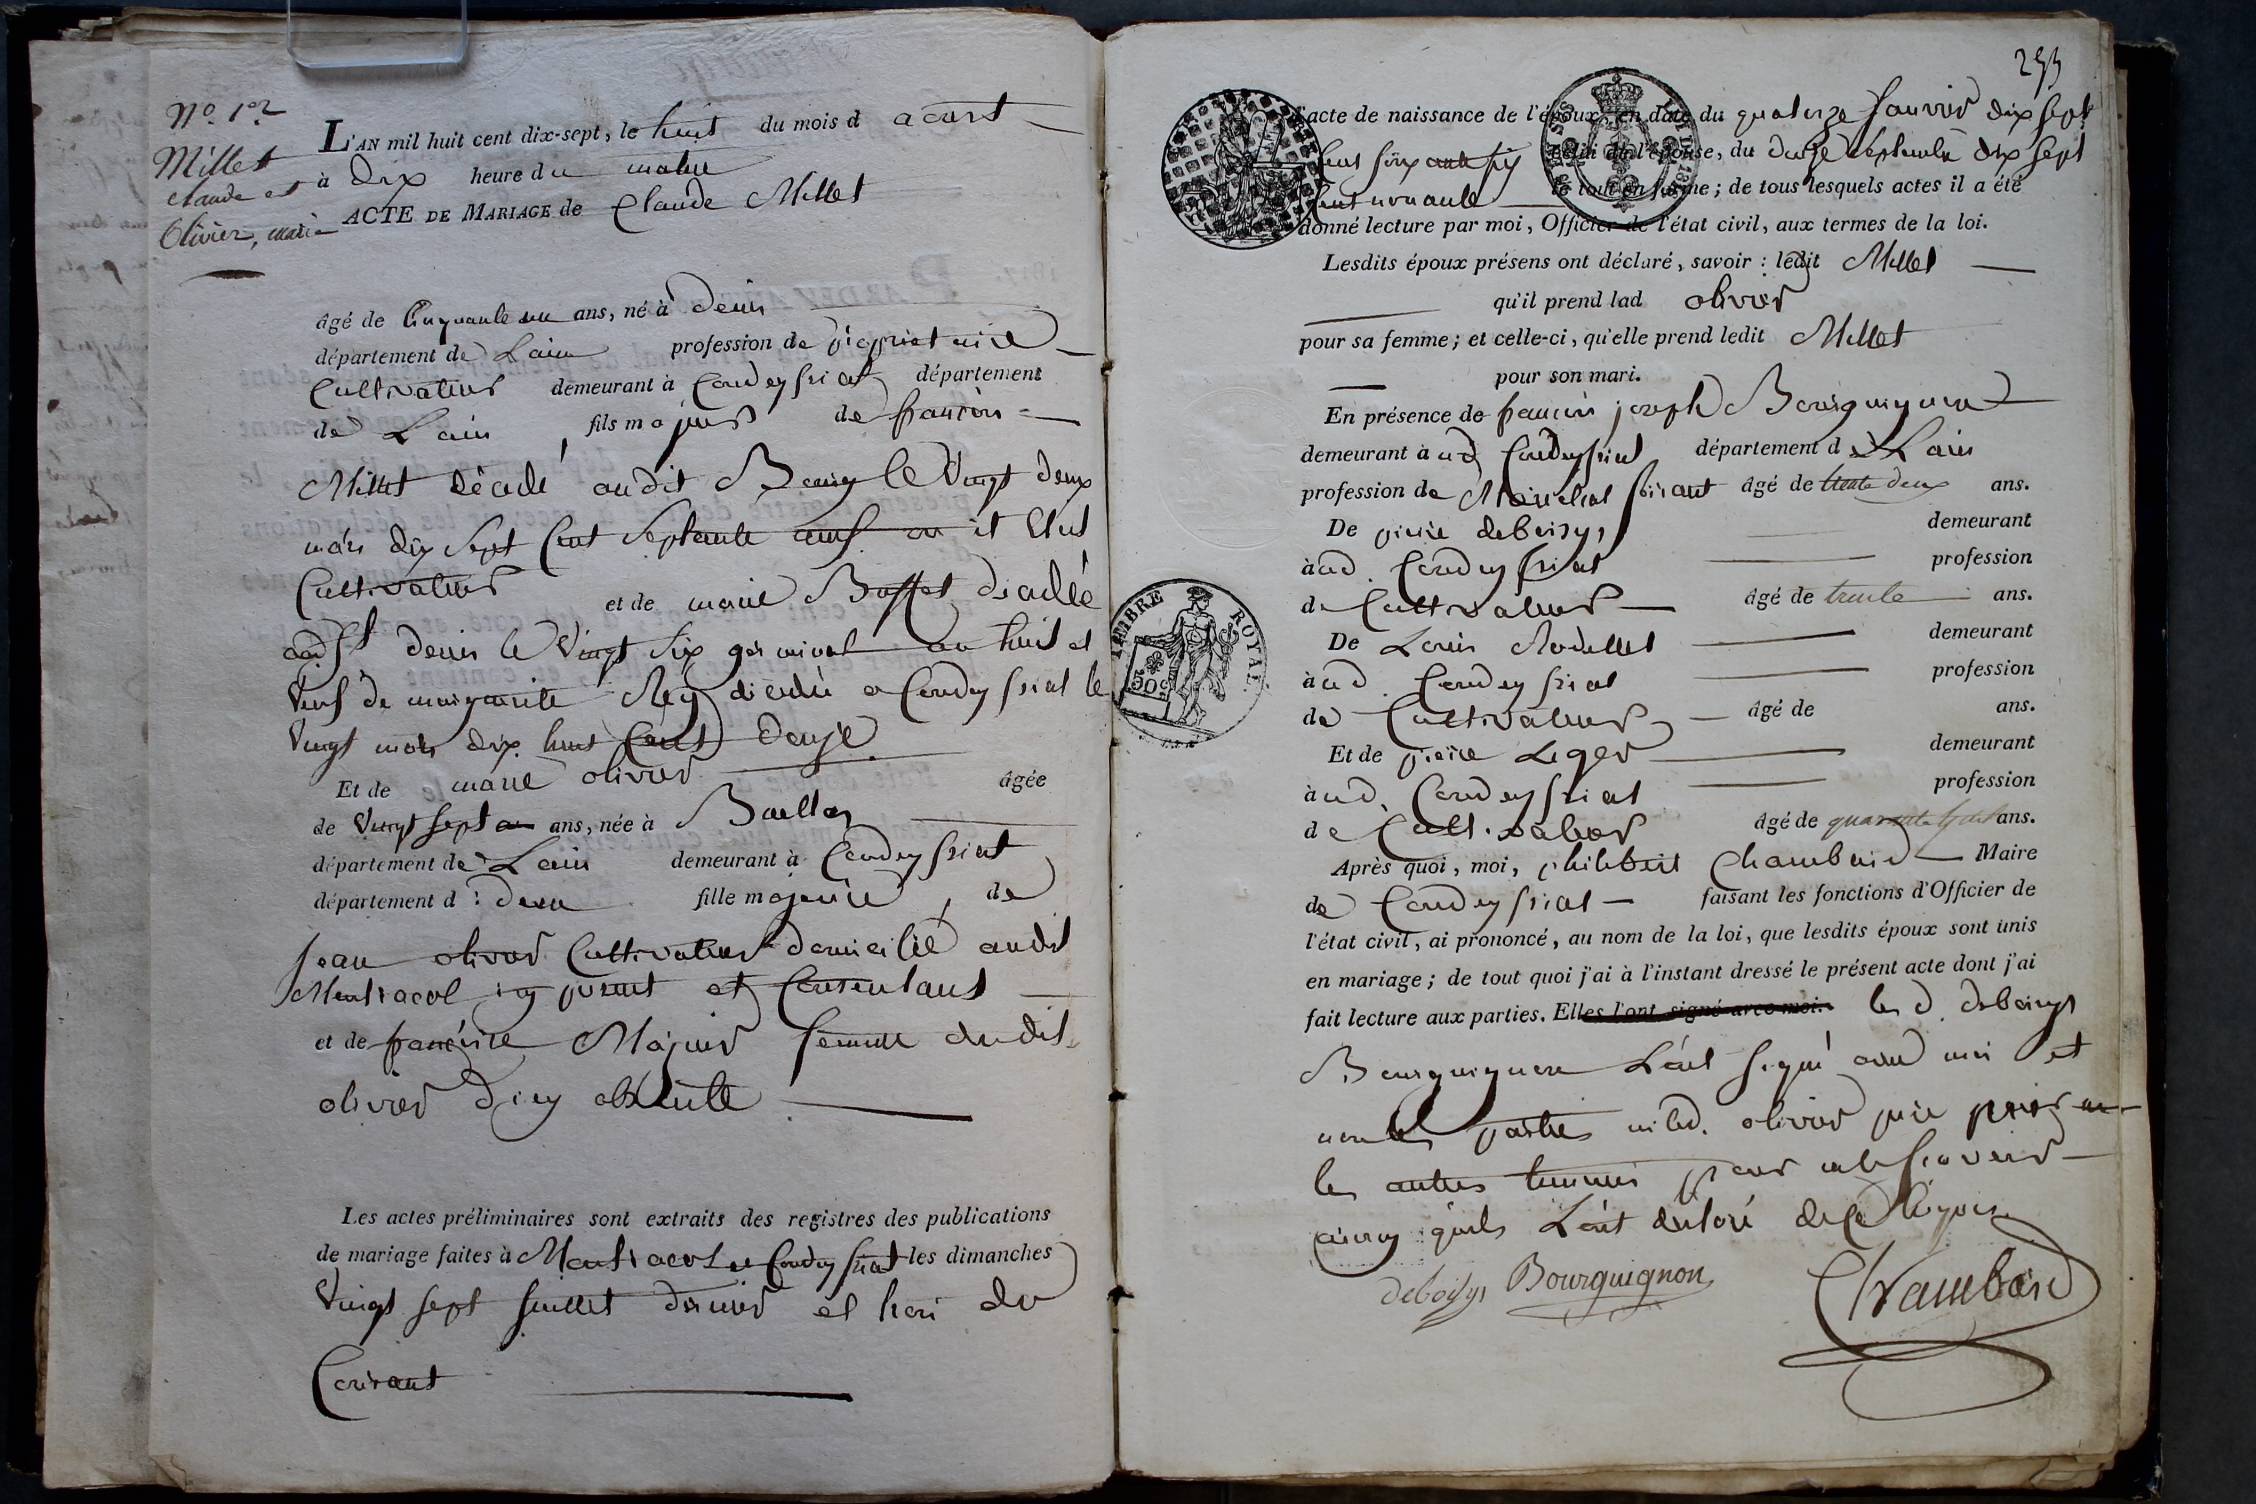 No. 1er
Millet
claude et
Olivier, marie
L'AN mil huit cent dix-sept, le huit du mois d acust
à dix heure du matin
ACTE DE MARIAGE de Claude Millet
âgé de Cinquante un ans, né à Denis
département de Lain profession de propriétaire
Cultivateur demeurant à Condeyssiat département
de Lain fils majeur de françois
Millet décédé audit Bourg le Vingt deux
mars dix Sept Cent Septante neuf
Cultivateur et de marie Buffet décédée
aud St denis le Vingt Six germinal an huit et
Veuf de margueritte Rey décédée a Condeyssiat le
Vingt mars dix huit Cent Douze
Et de marie olivier âgée
de Vingt sept ans, née à
département de Lain demeurant à Condeyssiat
département d fille majeure, de
Jean olivier Cultivateur domicilié audit
Montracol icy présent et Consentant
et de françoise Majeur femme dudit
olivier d'icy absente
Les actes préliminaires sont extraits des registres des publications
de mariage faites à Montracol et Condeyssiat les dimanches
Vingt sept Juillet dernier et trois du
Courant
253
l'acte de naissance de l'époux, en date du quatorze Janvier dix sept
Cent soixante six celui de l'épouse, du douze Septembre dix sept
Cent nonante le tout en forme; de tous lesquels actes il a été
donné lecture par moi, Officier de l'état civil, aux termes de la loi.
Lesdits époux présens ont déclaré, savoir : ledit Millet
qu'il prend lad olivier
pour sa femme; et celle-ci, qu'elle prend ledit Millet
pour son mari.
En présence de françois joseph Bourguignon
demeurant à ud Condeyssiat département de Lain
profession de Maréchal ferrant âgé de trente deux ans.
De pierre deboisys demeurant
à ud. Condeyssiat profession
de Cultivateur âgé de trente ans.
De Louis Rodellet demeurant
à ud. Condeyssiat profession
de Cultivateur âgé de ans.
Et de pierre Leger demeurant
à ud. Condeyssiat profession
de Cultivateur âgé de quarante ans.
Après quoi, moi, philibert Chambard Maire
de Condeyssiat faisant les fonctions d'Officier de
l'état civil, ai prononcé, au nom de la loi, que lesdits époux sont unis
en mariage; de tout quoi j'ai à l'instant dressé le présent acte dont j'ai
fait lecture aux parties. Elles l'ont signé avec moi. les d. deboisys
Bourguignon L'ont signé avec moi et
non les parties ni led. olivier père
les autres temoins pour ne scavoir
ainsy quils L'ont déclaré de ce
deboisys Bourguignon Chambard
TIMBRE ROYAL
50c